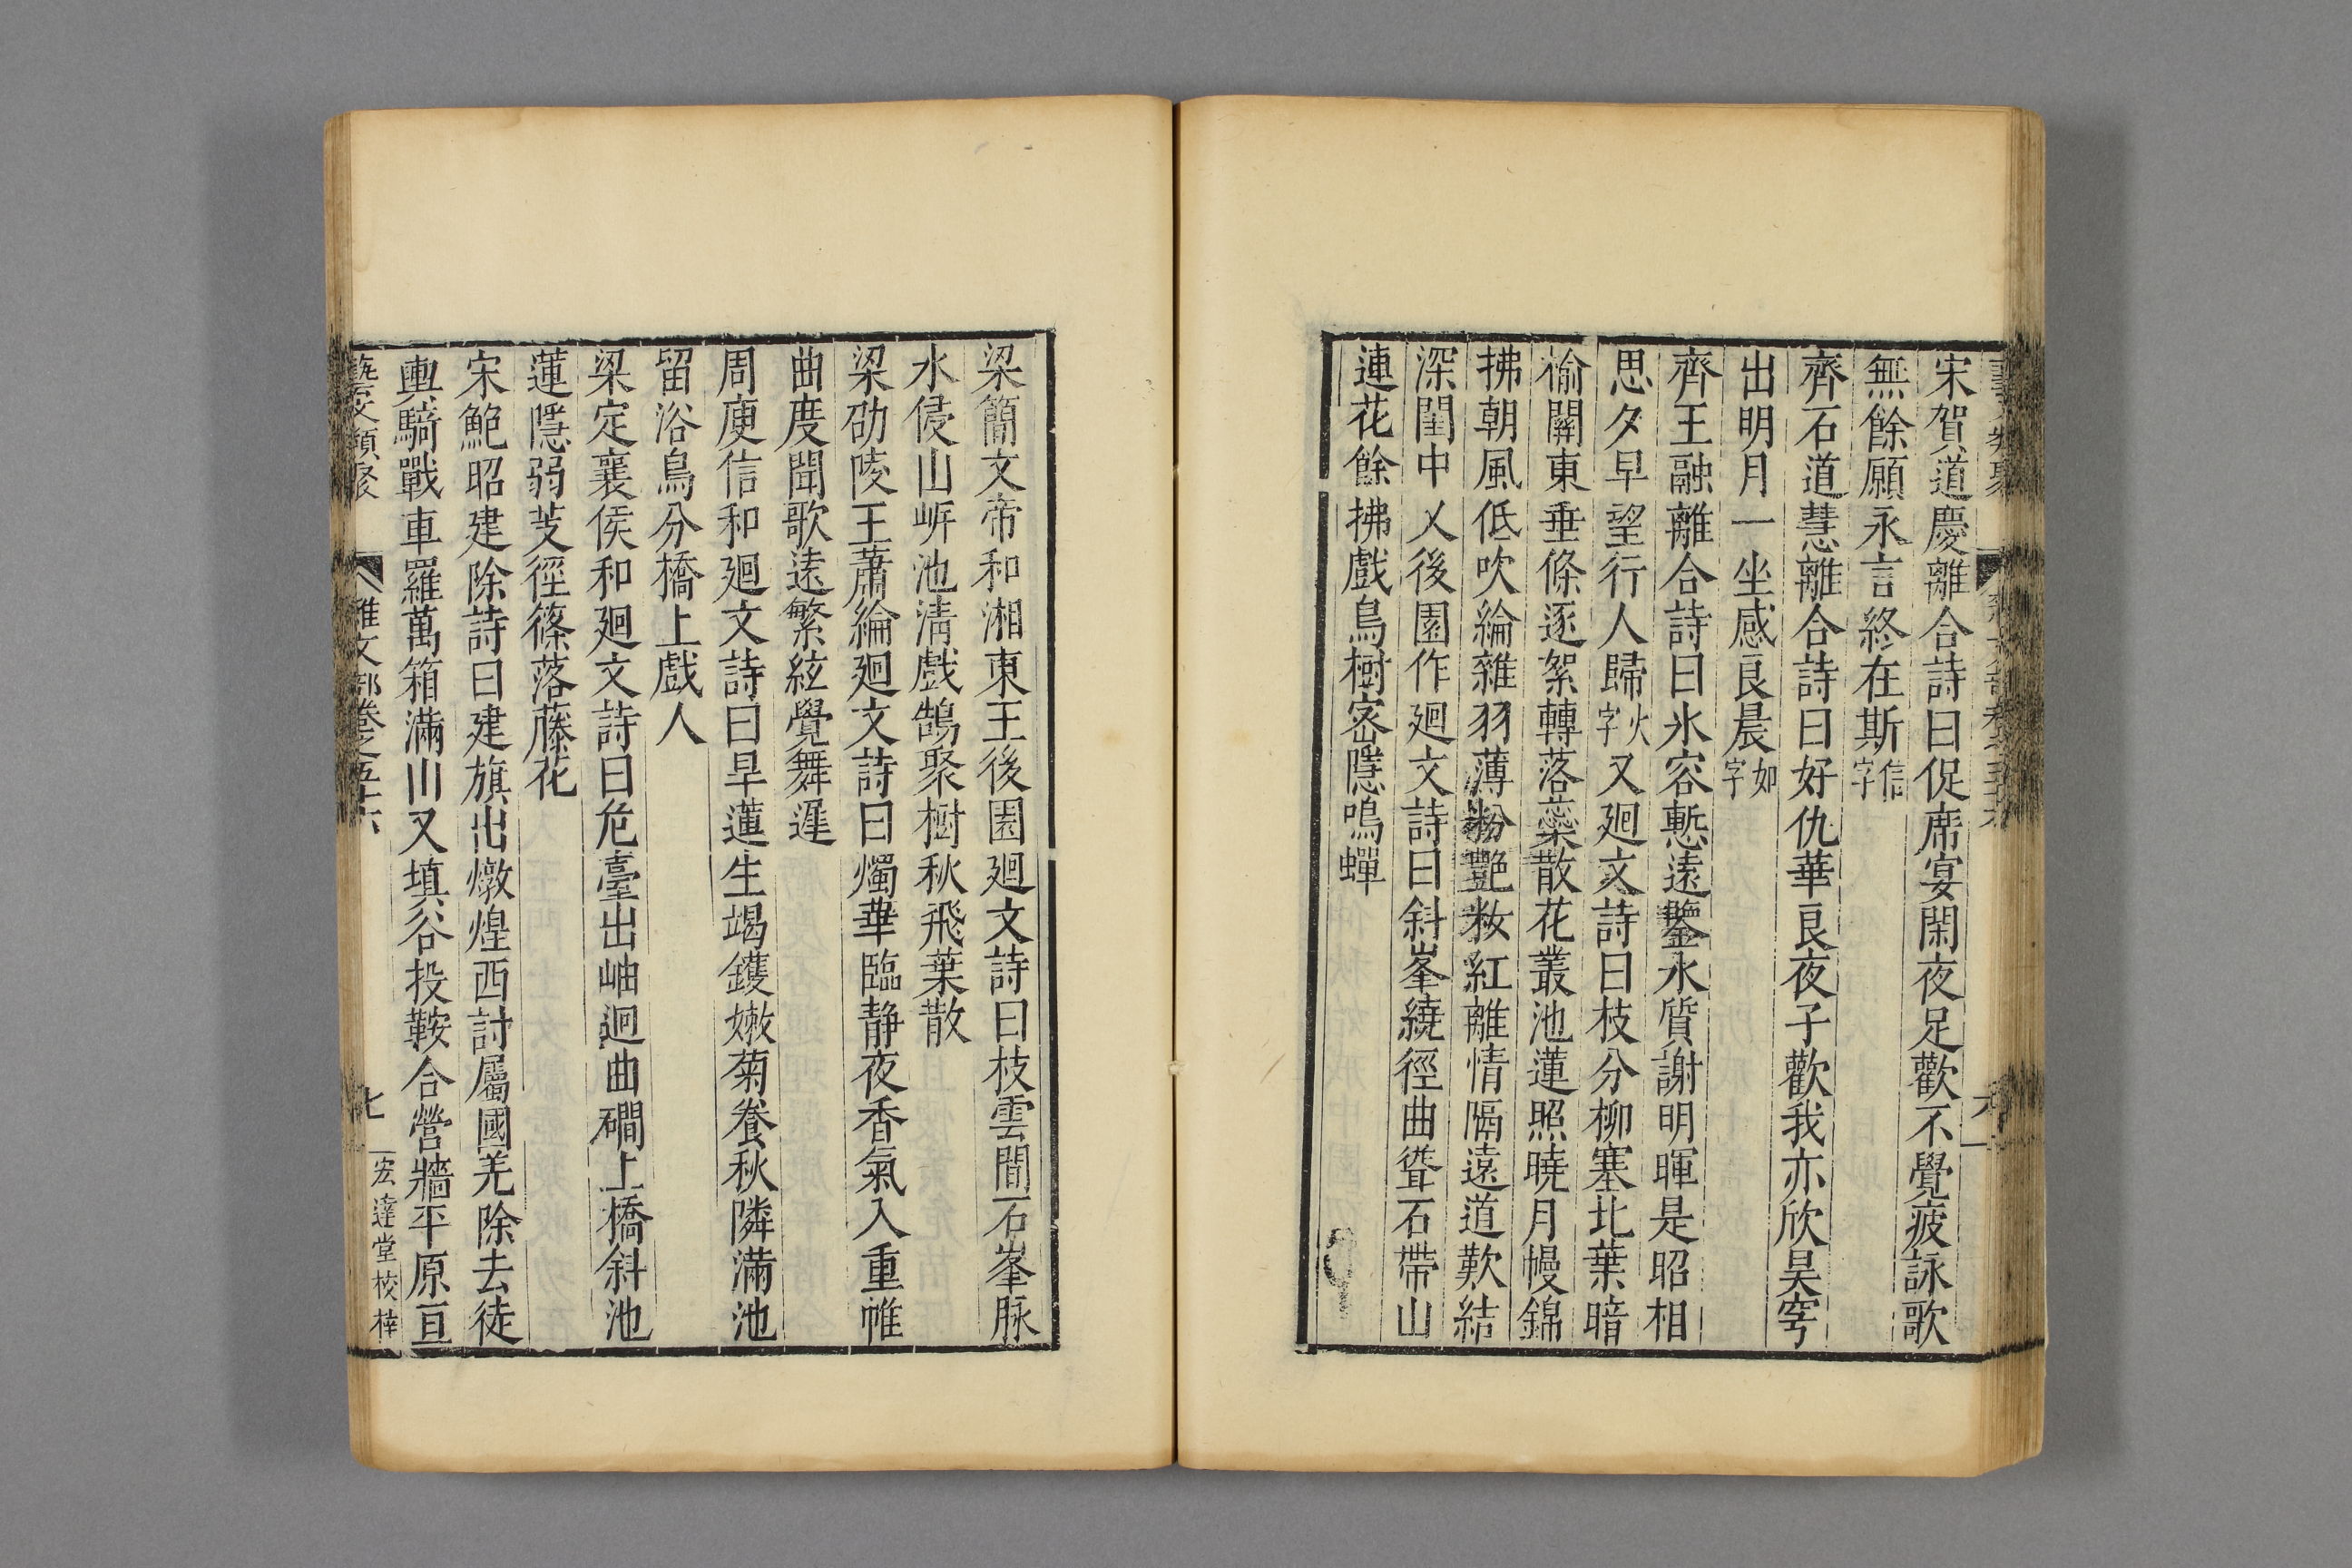 宋賀道慶離合詩曰促席宴閑夜足歡不覺疲詠歌
無餘願永言終在斯信字
齊石道慧離合詩曰好仇華良夜子歡我亦欣昊穹
出明月一坐感良晨如字
齊王融離合詩曰氷容慙遠鑒水質謝明暉是昭相
思夕早望行人歸火字又廻文詩曰枝分柳塞北葉暗
榆關東垂條逐絮轉落蘂散花叢池蓮照曉月幔錦
拂朝風低吹綸雜羽薄粉艷粧紅離情隔遠道歎結
深閨中乂後園作廻文詩曰斜峯繞徑曲聳石帶山
連花餘拂戲鳥樹密隱鳴蟬
梁簡文帝和湘東王後園廻文詩曰枝雲間石峯脉
水侵山㟁池清戲鵠聚樹秋飛葉散
梁邵陵王蕭綸廻文詩曰燭華臨靜夜香氣入重帷
曲度聞歌遠繁絃覺舞遲
周庾信和廻文詩曰旱蓮生竭鑊嫩菊養秋隣滿池
留浴鳥分橋上戲人
梁定襄侯和廻文詩曰危臺出岫迥曲磵上橋斜池
蓮隱弱芰徑篠落藤花
宋鮑昭建除詩曰建旗出燉煌西討屬國羌除去徒
輿騎戰車羅萬箱滿川又填谷投鞍合營牆平原亘
藝文類聚
雜文部卷之五十六
七
宏達堂校梓